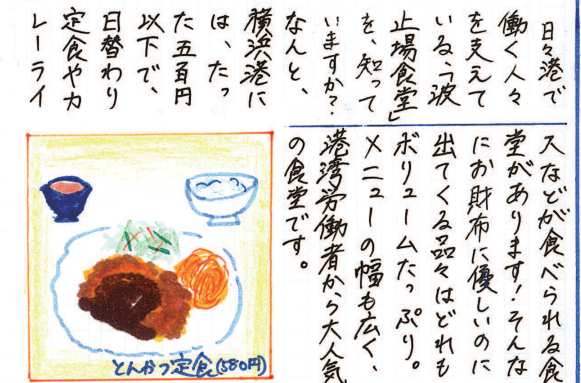 日々港で
働く人々
を支えて
いる、「波
止場食堂」
を、知って
いますか？
なんと、
横浜港に
は、たっ
た五百円
以下で、
日替わり
定食やカ
レーライ
スなどが食べられる食
堂があります！そんな
にお財布に優しいのに
出てくる品々はどれも
ボリュームたっぷり。
メニューの幅も広く、
港湾労働者から大人気
の食堂です。
とんかつ定食(580円)